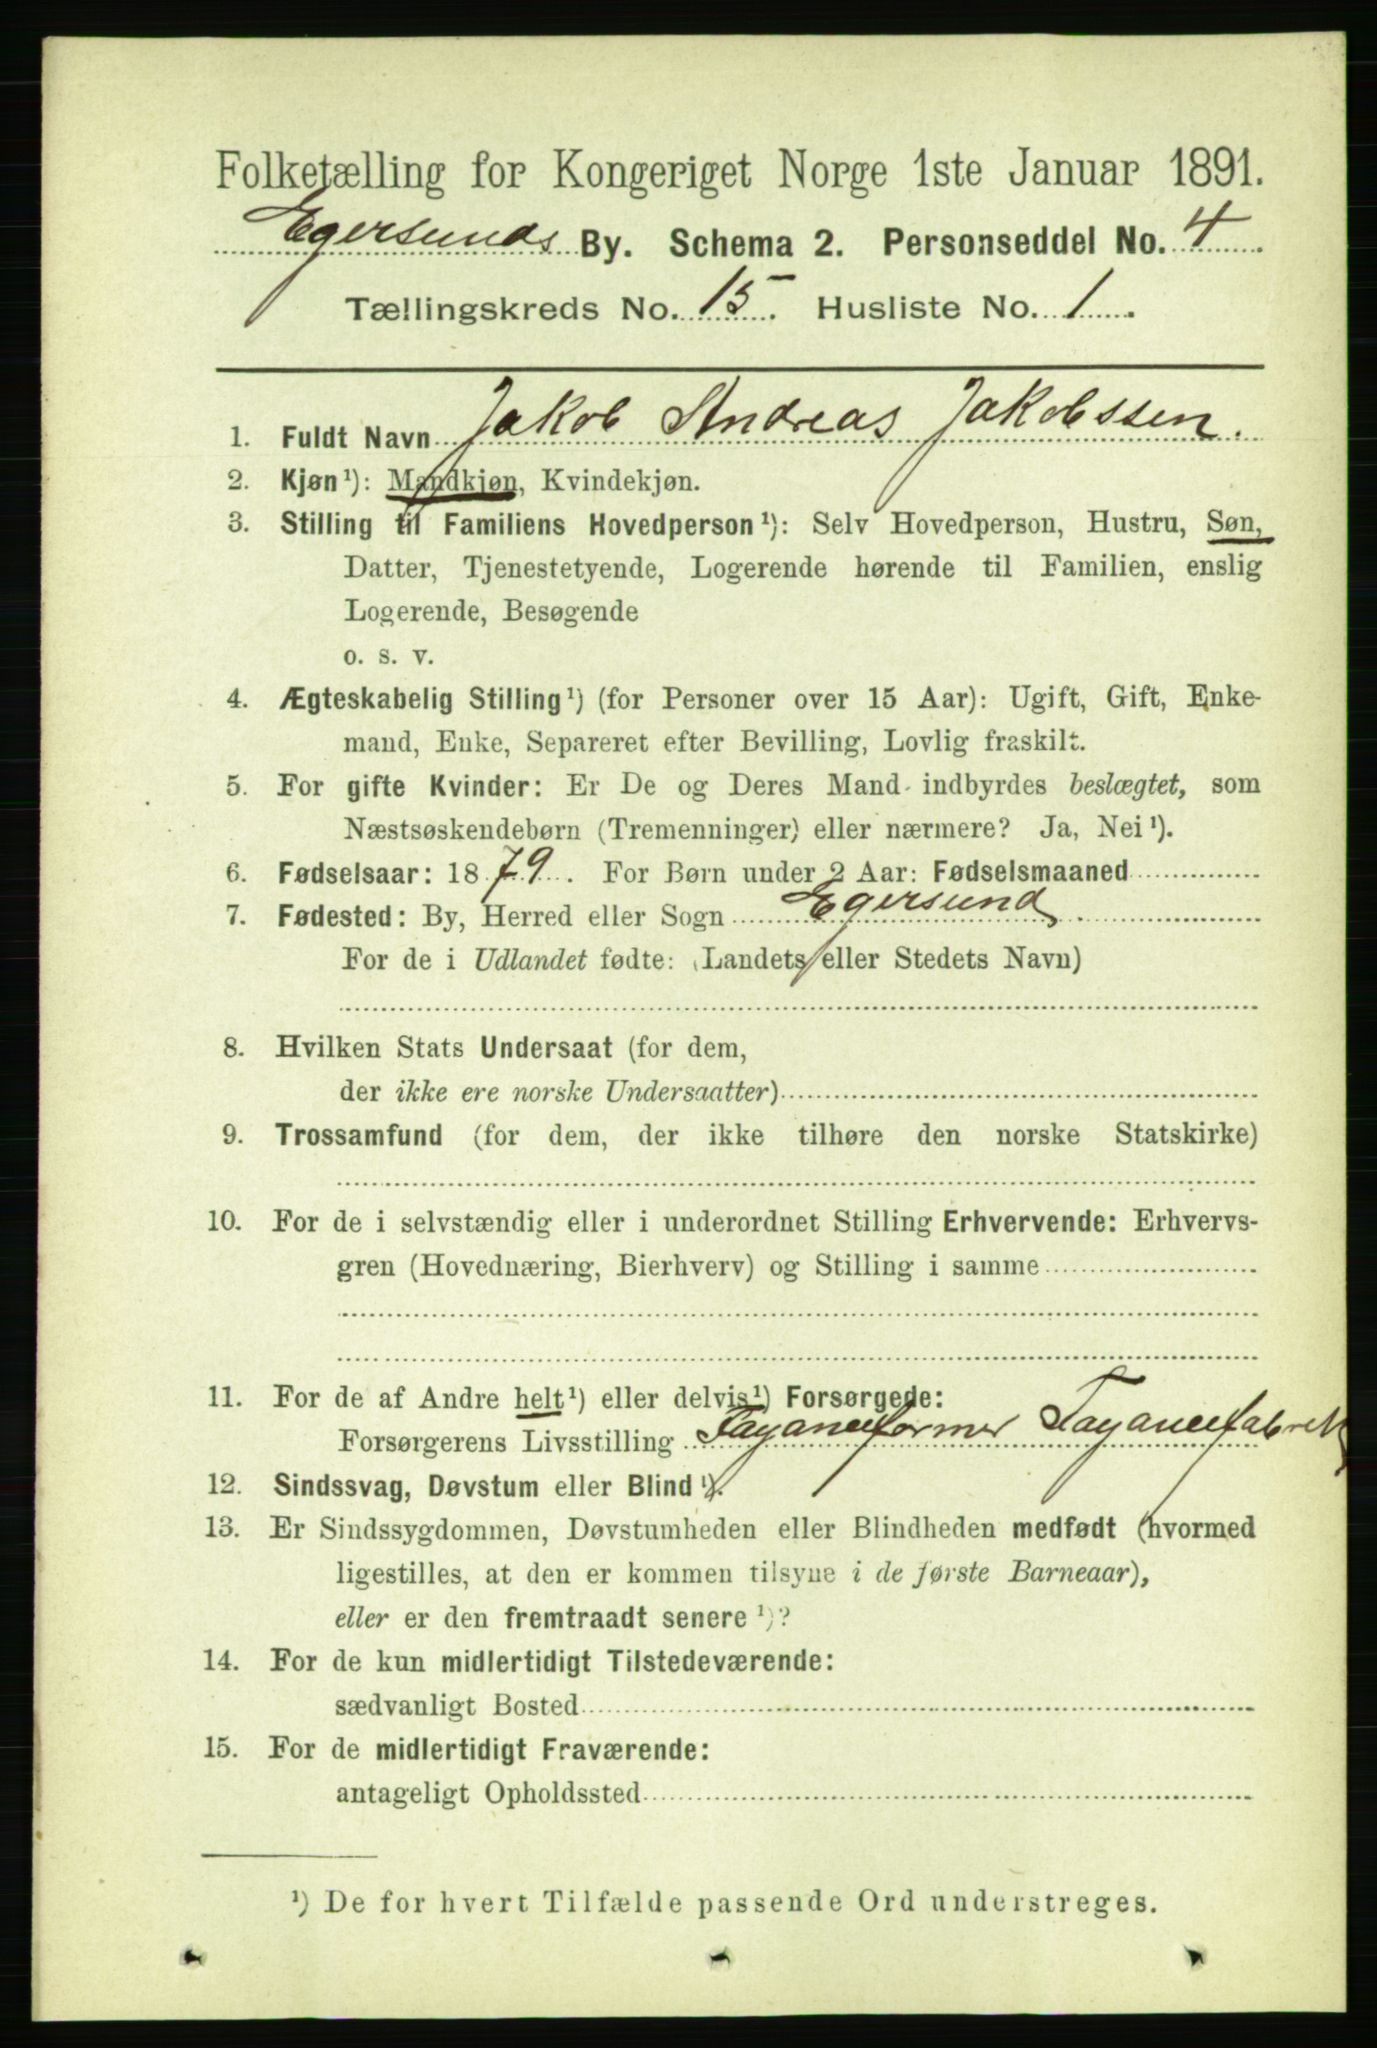 Folketælling for Kongeriget Norge 1ste Januar 1891.
Egersunds By. Schema 2. Personseddel No. 4
Tællingskreds No. 15. Husliste No. 1.
1. Fuldt Navn Jakob Andreas Jakobssen.
2. Kjøn¹): Mandkjøn, Kvindekjøn.
3. Stilling til Familiens Hovedperson¹): Selv Hovedperson, Hustru, Søn,
Datter, Tjenestetyende, Logerende hørende til Familien, enslig
Logerende, Besøgende
o. s. v.
4. Ægteskabelig Stilling¹) (for Personer over 15 Aar): Ugift, Gift, Enke-
mand, Enke, Separeret efter Bevilling, Lovlig fraskilt.
5. For gifte Kvinder: Er De og Deres Mand indbyrdes beslægtet, som
Næstsøskendebørn (Tremenninger) eller nærmere? Ja, Nei¹).
6. Fødselsaar: 1879. For Børn under 2 Aar: Fødselsmaaned
7. Fødested: By, Herred eller Sogn Egersund.
For de i Udlandet fødte: (Landets eller Stedets Navn)
8. Hvilken Stats Undersaat (for dem,
der ikke ere norske Undersaatter)
9. Trossamfund (for dem, der ikke tilhøre den norske Statskirke)
10. For de i selvstændig eller i underordnet Stilling Erhvervende: Erhvervs-
gren (Hovednæring, Bierhverv) og Stilling i samme
11. For de af Andre helt¹) eller delvis¹) Forsørgede:
Forsørgerens Livsstilling Fayanceformer Fayancefabrik
12. Sindssvag, Døvstum eller Blind¹).
13. Er Sindssygdommen, Døvstumheden eller Blindheden medfødt (hvormed
ligestilles, at den er kommen tilsyne i de første Barneaar),
eller er den fremtraadt senere¹)?
14. For de kun midlertidigt Tilstedeværende:
sædvanligt Bosted
15. For de midlertidigt Fraværende:
antageligt Opholdssted
¹) De for hvert Tilfælde passende Ord understreges.